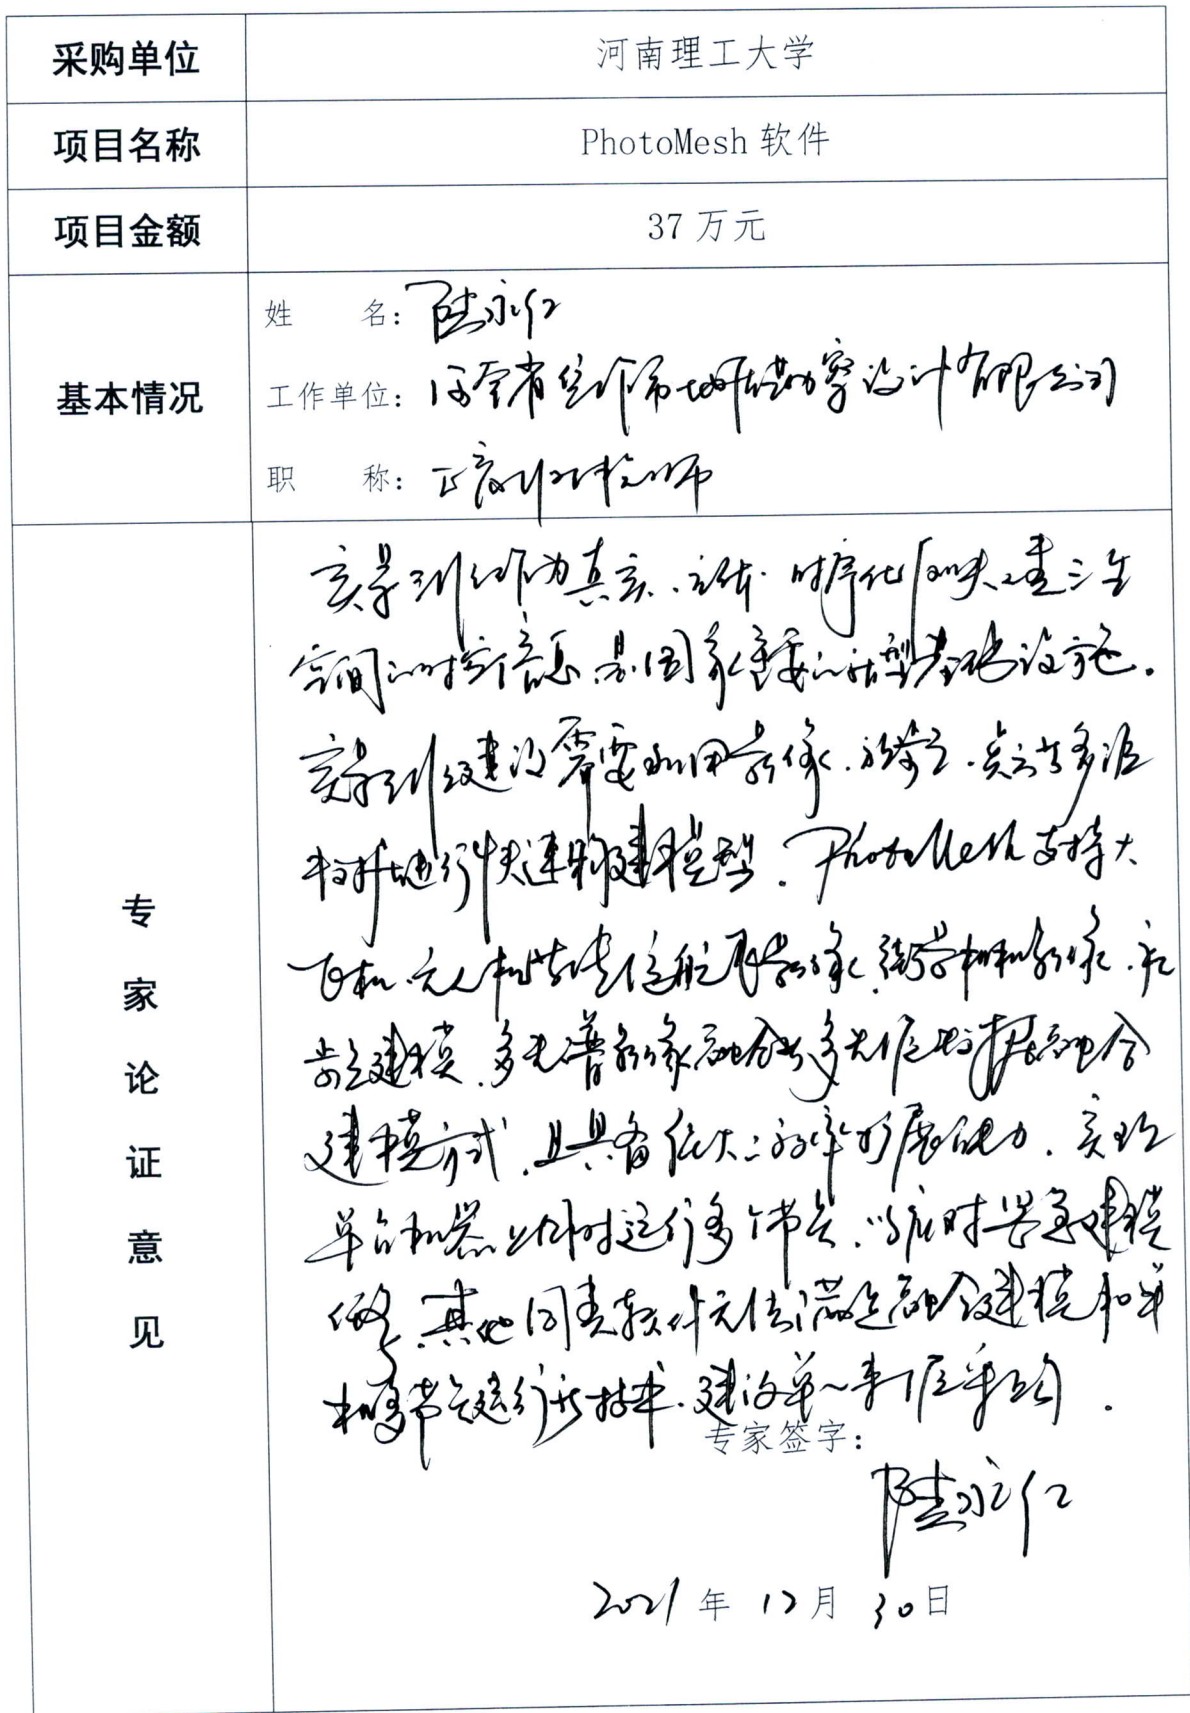 采购单位 河南理工大学
项目名称 PhotoMesh 软件
项目金额 37 万元
基本情况
姓 名: 陆永仁
工作单位: 省 勘察设计有限公司
职 称: 正高级工程师
专家论证意见
实景三维作为真实、立体、时序化反映
空间的时空信息,是国家重要的新型基础设施。
实景三维建设需要利用影像、 点云等多源
数据进行快速构建模型。PhotoMesh 支持大
飞机、无人机等 航空影像、街景相机影像、
点云建模、多光谱影像融合 多 数据融合
建模方式,且具备 扩展能力,实现
单台机器上同时运行多个节点, 应对 建模
任务,其他同类软件无法满足融合建模和单
机多节点运行的技术,建议单一来源采购。
专家签字:
陆永仁
2021 年 12 月 30 日